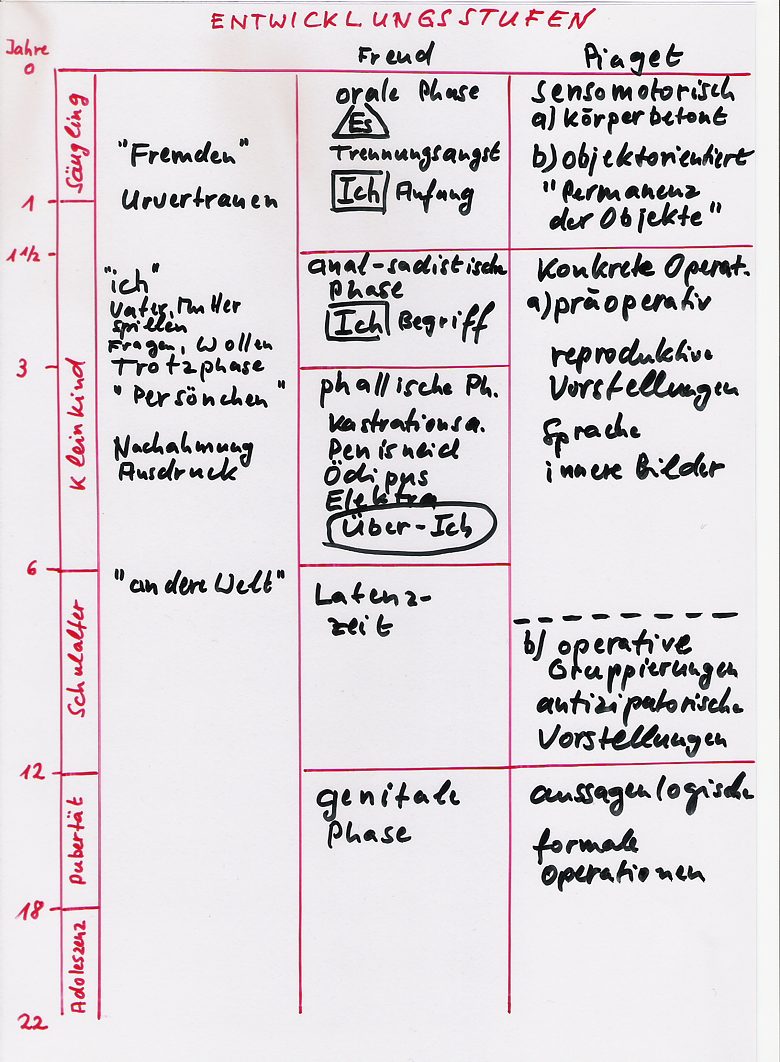 ENTWICKLUNGSSTUFEN
Jahre
Freud
Piaget
0
Säugling
1
1 1/2
Kleinkind
3
6
Schulalter
12
Pubertät
18
Adoleszenz
22
"Fremden"
Urvertrauen
"ich"
Vater, Mutter
spielen
Fragen, Wollen
Trotzphase
"Persönchen"
Nachahmung
Ausdruck
"andere Welt"
orale Phase
Es
Trennungsangst
Ich Anfang
anal-sadistische
Phase
Ich Begriff
phallische Ph.
Kastrationsa.
Penisneid
Ödipus
Elektra
Über-Ich
Latenz-
zeit
genitale
Phase
sensomotorisch
a) körperbetont
b) objektorientiert
"Permanenz
der Objekte"
Konkrete Operat.
a) präoperativ
reproduktive
Vorstellungen
Sprache
innere Bilder
b) operative
Gruppierungen
antizipatorische
Vorstellungen
aussagenlogische
formale
Operationen